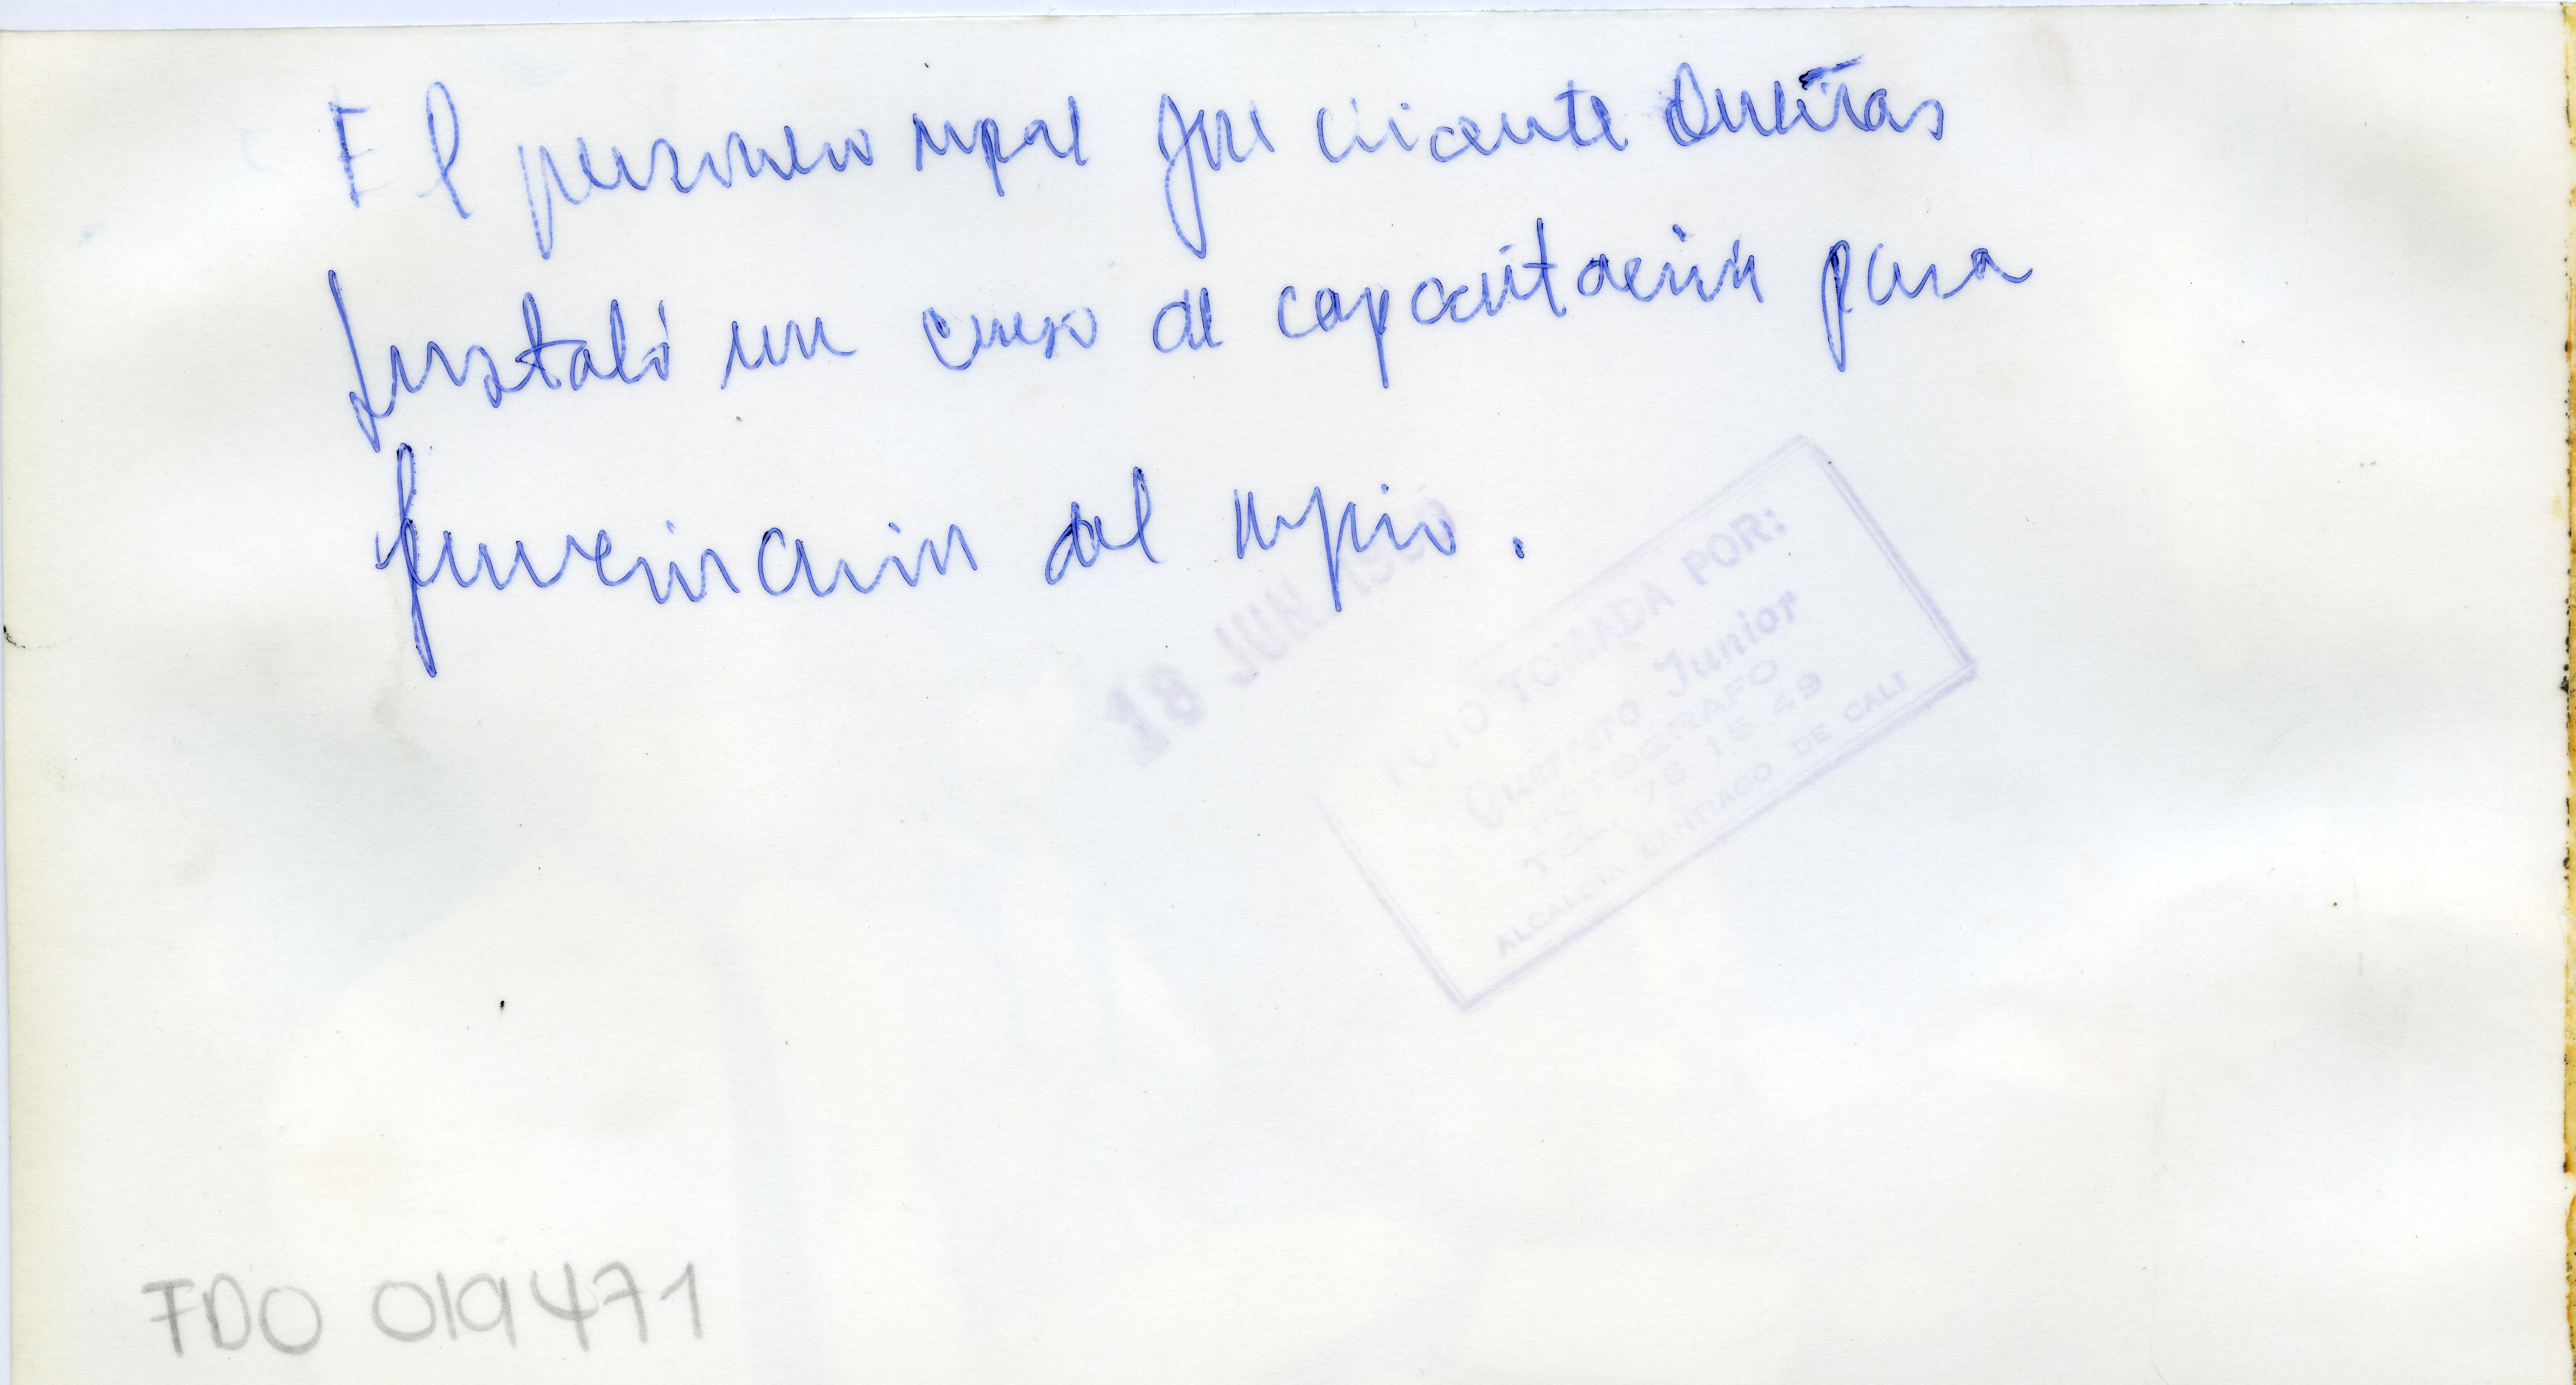 El personero mpal José Vicente Dueñas
Instaló un curso de capacitación para
funcionarios del mpio.
18 JUN
FOTO TOMADA POR:
Junior
FOTOGRAFO
TEL 75 15 49
ALCALDIA SANTIAGO DE CALI
FDO 019471